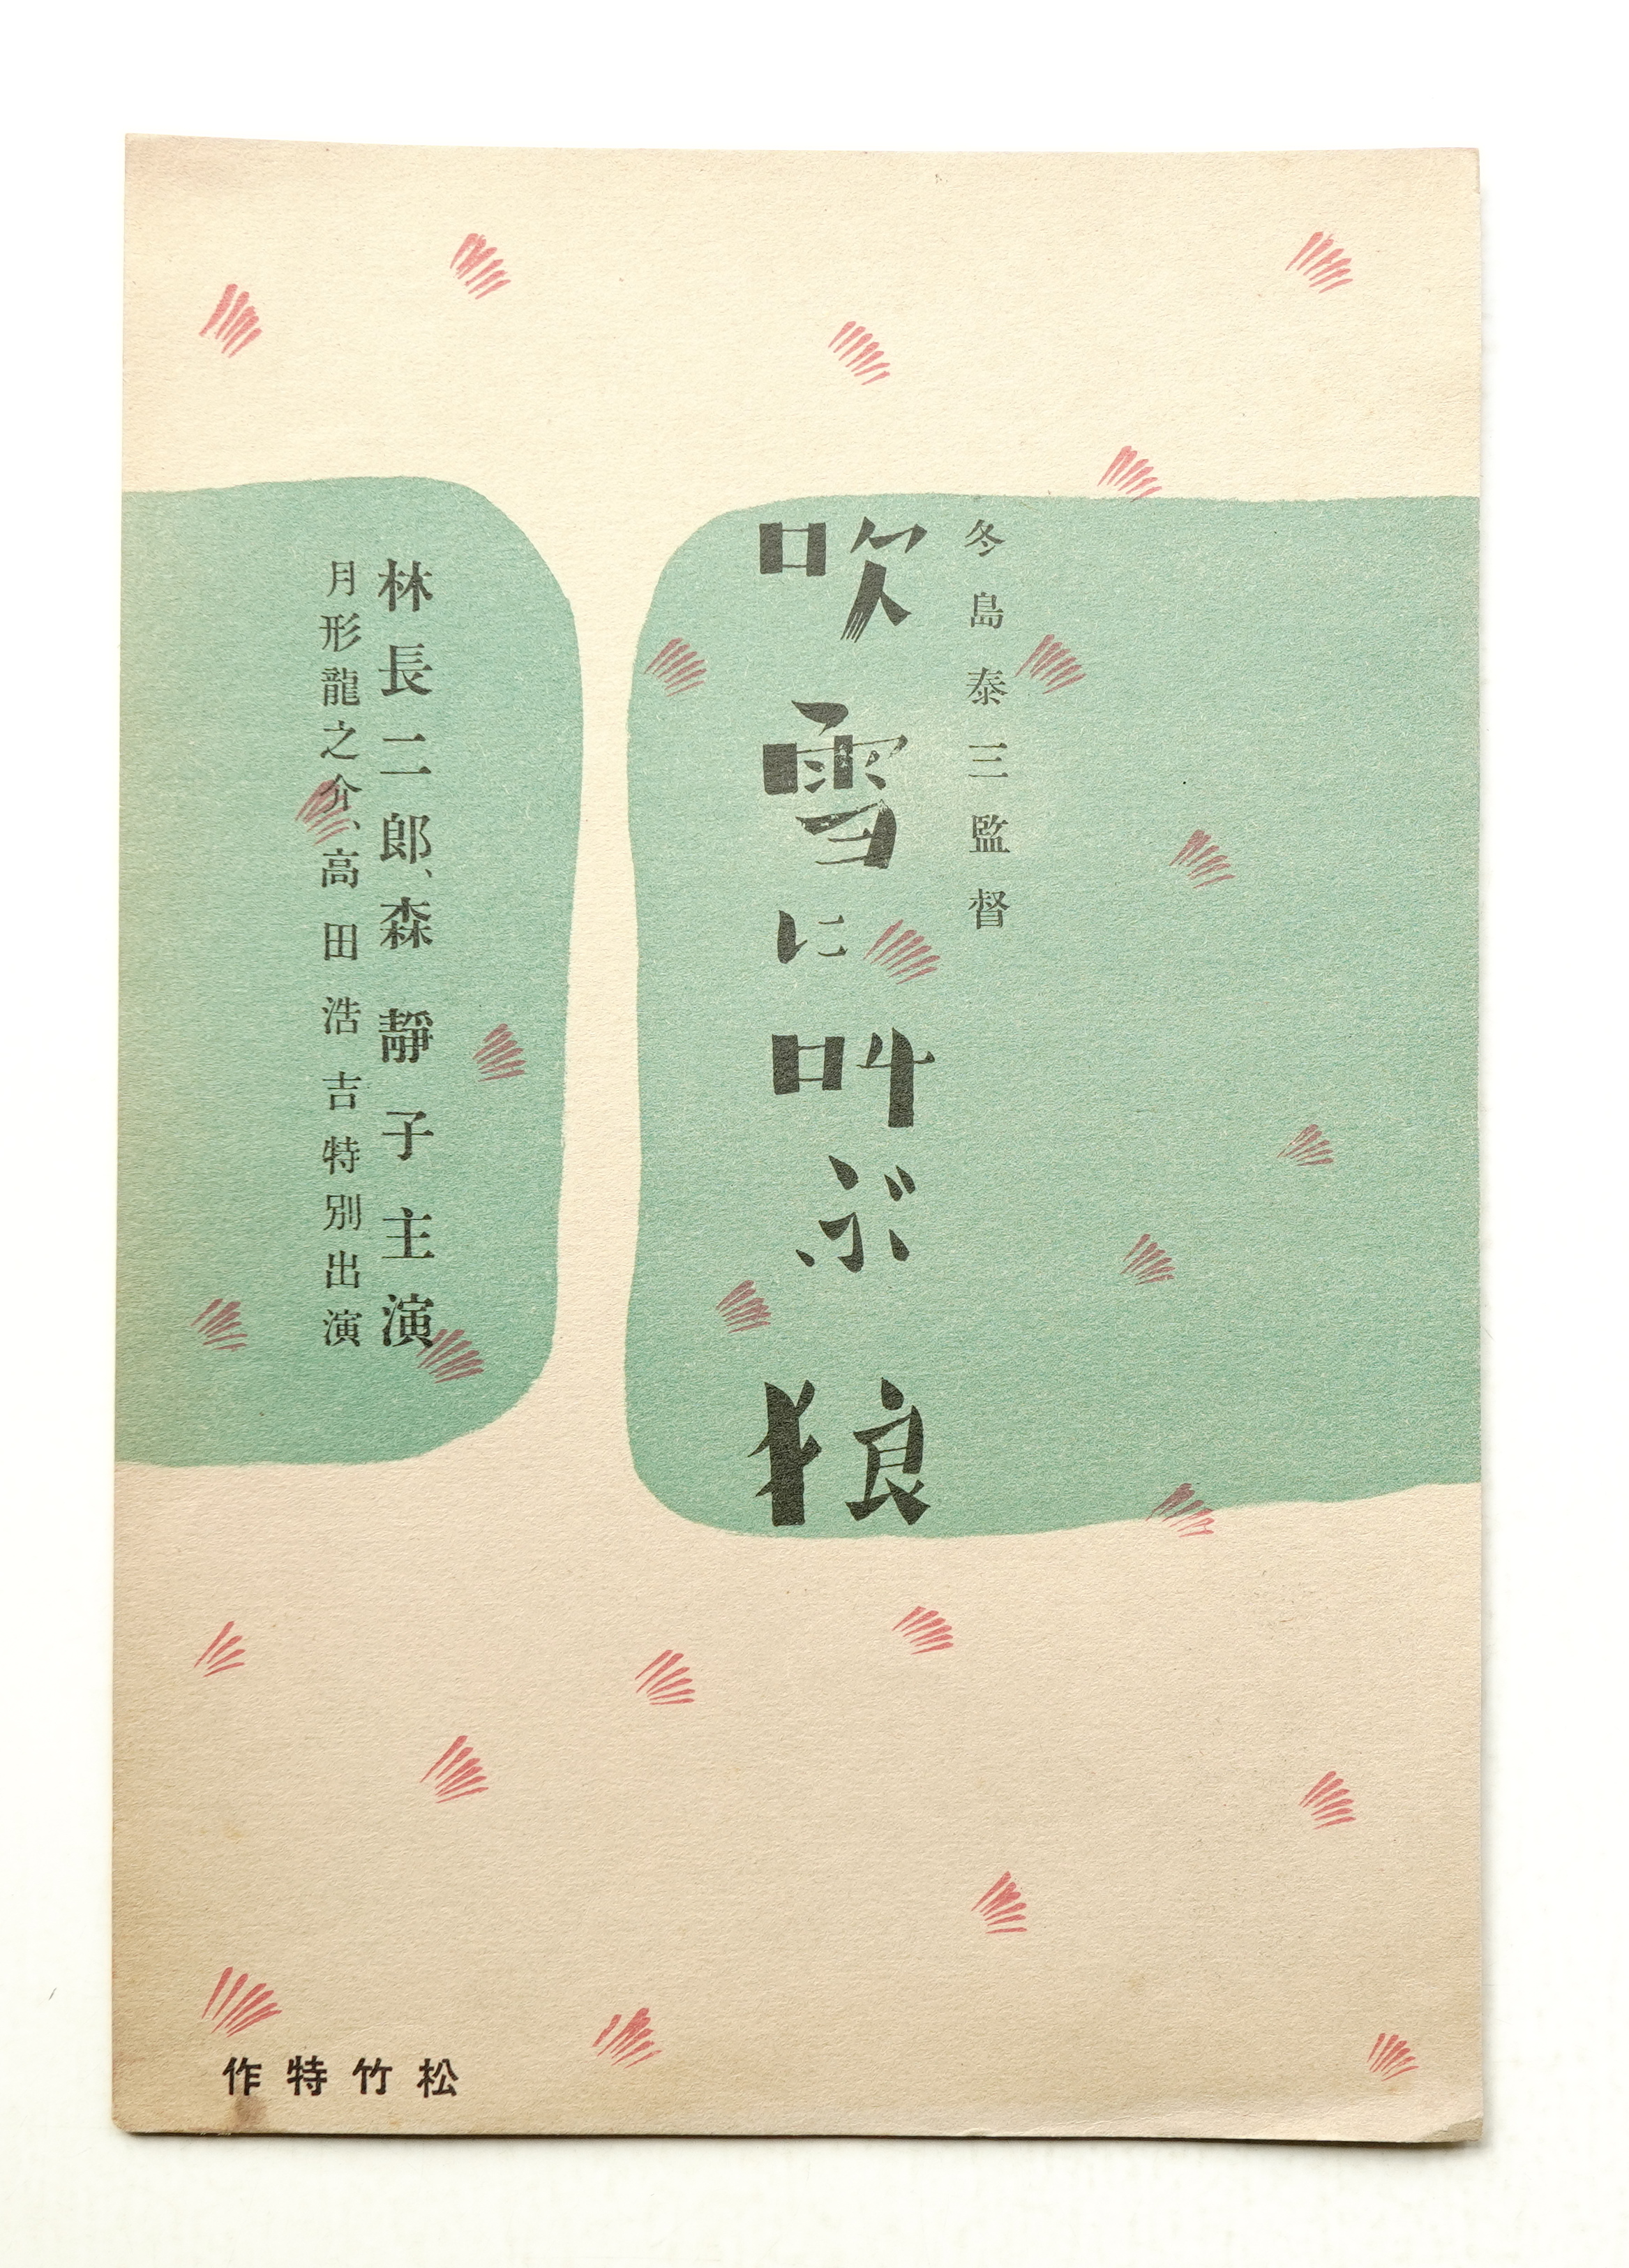 冬島泰三監督
吹雪に叫ぶ狼
林長二郎、森靜子主演
月形龍之介、高田浩吉特別出演
作特竹松